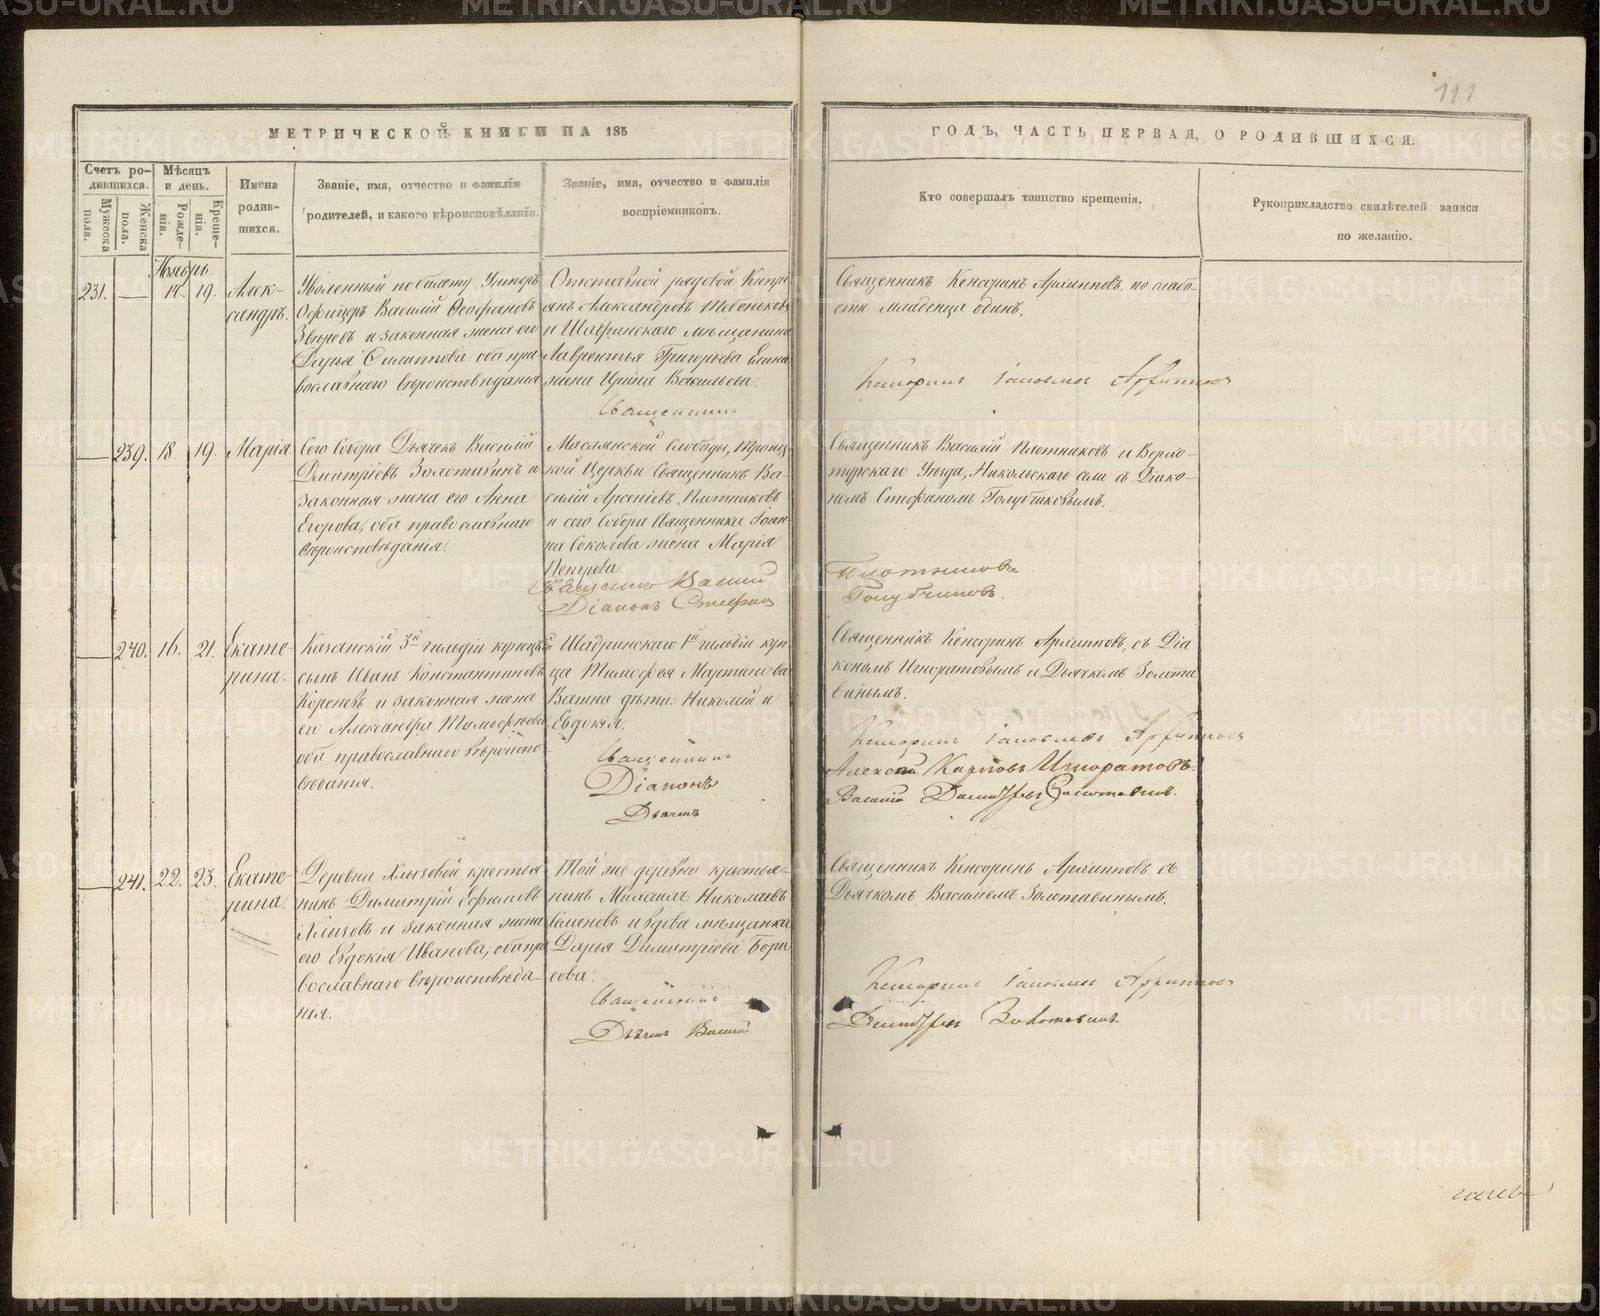 111
МЕТРИЧЕСКОЙ КНИГИ НА 185
ГОДЪ, ЧАСТЬ ПЕРВАЯ, О РОДИВШИХСЯ.
Счетъ ро-
дившихся.
Мужеска пола.
Женска пола.
Мѣсяцъ
и день.
Рожде-
нія.
Креще-
нія.
Имена
родив-
шихся.
Званіе, имя, отчество и фамилія
родителей, и какого вѣроисповѣданія.
Званіе, имя, отчество и фамилія
воспріемниковъ.
Кто совершалъ таинство крещенія.
Рукоприкладство свидѣтелей записи
по желанію.
Ноябрь
231. — 14. 19.
Алек-
сандръ.
Уволенный по билету Унтеръ
Офицеръ Василій Ѳеофановъ
Звѣревъ и законная жена его
Дарья Филиппова оба пра
вославнаго вѣроисповѣданія
Отставной рядовой Кипрі
анъ Александровъ
и Шадринскаго мѣщанина
Лаврентья Григорьева
жена Ирина Васильева.
Священникъ
Священникъ Кенсоринъ Архипповъ, по слабо-
сти младенца одинъ.
Кенсоринъ Іаковлевъ Архипповъ
— 239. 18 19.
Марія.
Сего Собора Дьячекъ Василій
Дмитріевъ Золотавинъ и
законная жена его Анна
Егорова, оба православнаго
вѣроисповѣданія.
Маслянской слободы, Троиц
кой Церкви Священникъ Ва-
силій Арсеніевъ Плотниковъ
и сего Собора Священника Іоан-
на Соколова жена Марія
Петрова.
Священникъ Василій
Діаконъ Стефанъ
Священникъ Василій Плотниковъ и Верхо-
турскаго Уѣзда, Никольскаго села съ Діако-
номъ Стефаномъ Голубчиковымъ.
Плотниковъ
Голубчиковъ.
— 240. 16. 21.
Екате-
рина.
Казанскій 3й гильдіи купецкій
сынъ Иванъ Константиновъ
Кореневъ и законная жена
его Александра Тимофѣева
оба православнаго вѣроиспо-
вѣданія.
Шадринскаго 1й гильдіи куп-
ца Тимофея Мартинова
дѣти: Николай и
Евдокія.
Священникъ
Діаконъ
Дьячекъ
Священникъ Кенсоринъ Архипповъ, съ Діа
кономъ Игноратовымъ и Дьячкомъ Золота
винымъ.
Кенсоринъ Іаковлевъ Архипповъ
Алексей Карповъ Игноратовъ.
Василій Дмитріевъ Золотавинъ.
— 241. 22. 23.
Екате-
рина.
Деревни Хлызовой крестья
нинъ Димитрій Ефимовъ
Хлызовъ и законная жена
его Евдокія Иванова, оба пра
вославнаго вѣроисповѣда-
нія.
Той же деревни крестья-
нинъ Михаилъ Николаевъ
Семеновъ и вдова мѣщанка
Дарія Димитріева Бори
сова.
Священникъ
Дьячекъ Василій
Священникъ Кенсоринъ Архипповъ съ
Дьячкомъ Василіемъ Золотавинымъ.
Кенсоринъ Іаковлевъ Архипповъ
Дмитріевъ Золотавинъ.
METRIKI.GASO-URAL.RU